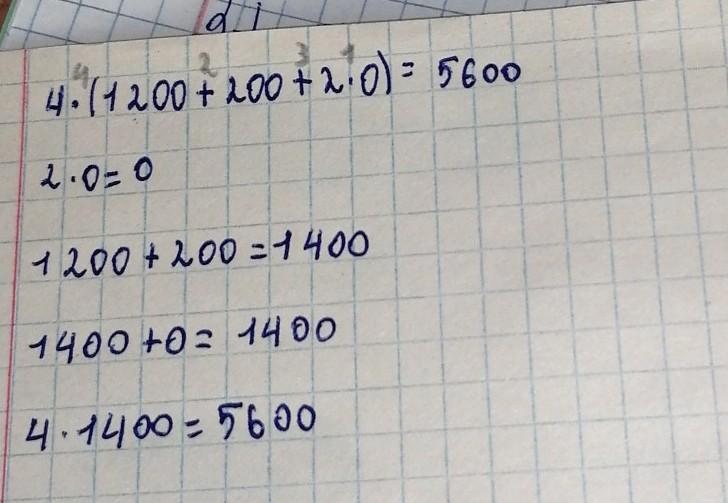 4 2 3 1
4·(1200+200+2·0)= 5600
2·0=0
1200+200=1400
1400+0= 1400
4·1400=5600